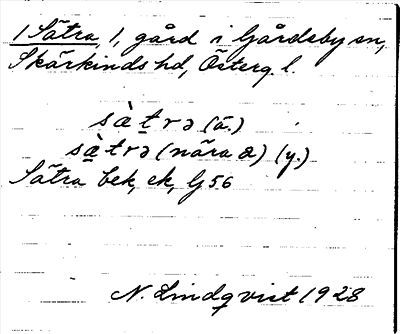 1 Sätra, 1, gård i Gårdeby sn,
Skärkinds hd, Österg. l.
sàtrə (ä.)
sàtrə (nära a) (y.)
Sätra bek, ek, G 56
N. Lindqvist 1928